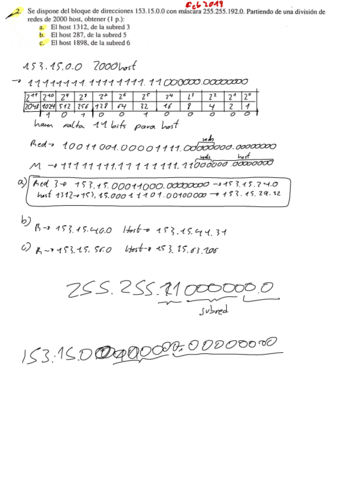 Feb 2019
2. Se dispone del bloque de direcciones 153.15.0.0 con máscara 255.255.192.0. Partiendo de una división de
redes de 2000 host, obtener (1 p.):
a. El host 1312, de la subred 3
b. El host 287, de la subred 5
c. El host 1898, de la subred 6
153.15.0.0 2000host
→ 11111111.11111111.11000000.00000000
2¹¹ 2¹⁰ 2⁹ 2⁸ 2⁷ 2⁶ 2⁵ 2⁴ 2³ 2² 2¹ 2⁰
2048 1024 512 256 128 64 32 16 8 4 2 1
1 0 1 0 0 1 0 0 0 0 0
hacen falta 11 bits para host
Red→ 10011001.00001111.00000000.00000000
M → 11111111.11111111.11000000.00000000
a) Red 3→ 153.15.00011000.00000000 → 153.15.24.0
host 1312→ 153.15.00011101.00100000 → 153.15.29.32
b)
R→ 153.15.40.0 Host→ 153.15.41.31
c) R→ 153.15.56.0 Host→ 153.15.63.106
255.255.11000000.0
subred
153.15.00000000.00000000